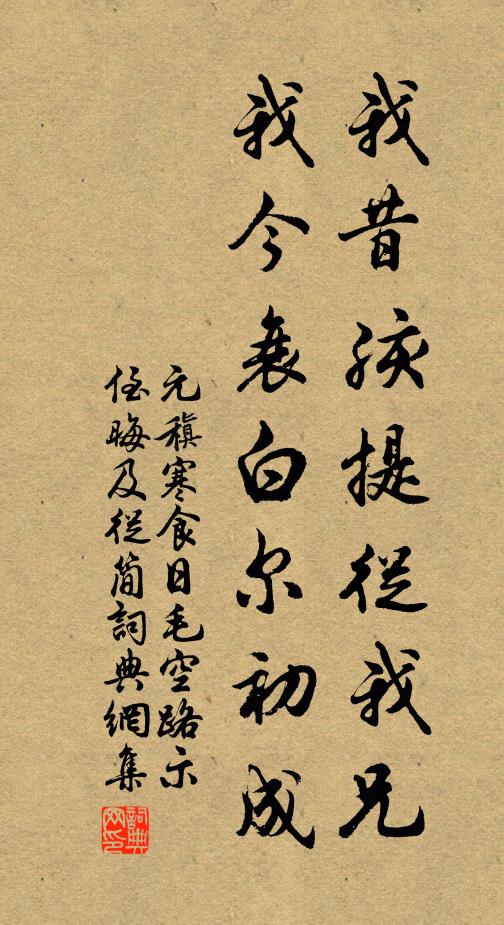 我昔孩提從我兄
我今衰白尔初成
元稹寒食日毛空路示
侄晦及從簡詞典網集
詞典网印